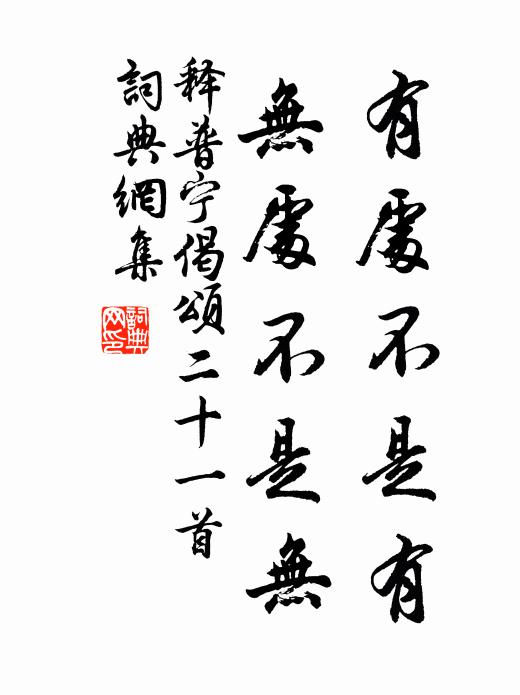 有處不是有
無處不是無
释普宁偈頌二十一首
詞典網集
詞典网印